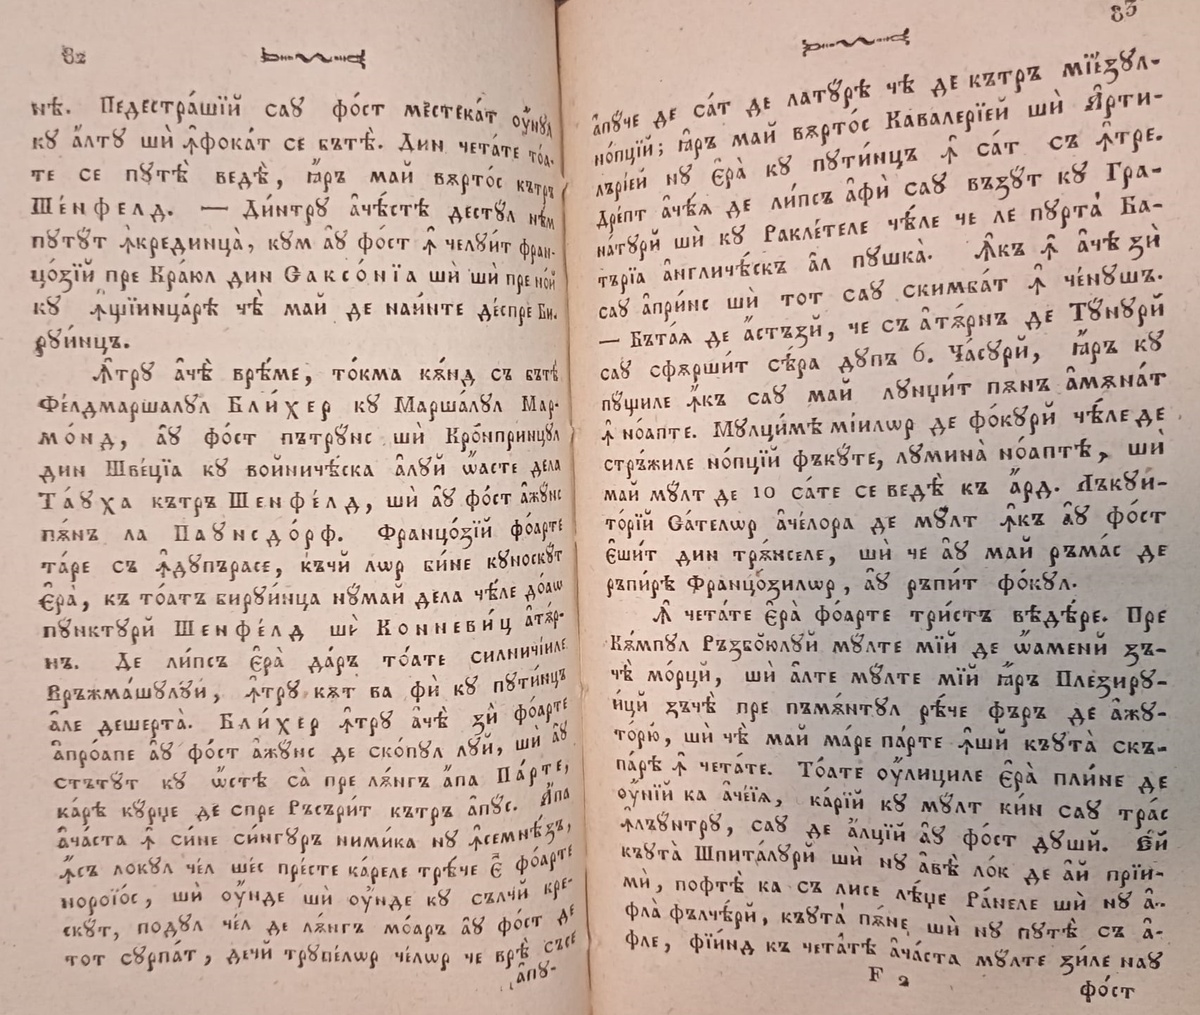 82
нѣ. Педестра́шїй саꙋ фо́ст мѣстека́т ꙋ҆́нꙋл
кꙋ а҆́лтꙋ шѝ ꙟ҆фока́т се бътѐ. Дин чета́те то́а-
те се пꙋтѣ̀ ведѣ̀, ꙗ҆́ръ май вѫрто́с кътръ
Ше́нфелд. — Ди́нтрꙋ а҆че́стѣ дестꙋл нѣм
пꙋтꙋ́т ꙟ҆крединца̀, кꙋм а҆ꙋ фо́ст ꙟ҆ челꙋи́т фран-
цо́зїй пре Кра́юл дин Саксо́нїа шѝ шѝ пре но́й
кꙋ ꙟ҆щїинца́рѣ чѣ май де наи́нте де́спре Би-
рꙋи́нцъ.
Ꙟ҆трꙋ а҆чѐ вре́ме, то́кма кѫнд съ бътѐ
Фе́лдмаршалꙋл Бли́хер кꙋ Марша́лꙋл Мар-
мо́нд, а҆ꙋ фо́ст пътрꙋ́нс шѝ Кро́нпринцꙋл
дин Шве́цїа кꙋ войниче́ска а҆лꙋй ѡ҆́асте дела
Та́ꙋха кътръ Шенфе́лд, шѝ а҆ꙋ фо́ст а҆жꙋ́нс
пѫ́нъ ла Паꙋнсдо́рф. Францо́зїй фо́арте
та́ре съ ꙟ҆дꙋпърасе, къчй лѡр би́не кꙋноскꙋ́т
є҆ра̀, къ то́атъ бирꙋи́нца нꙋмай дела чѣ́ле до́аѡ
пꙋнктꙋрй Шенфе́лд шѝ Конневи́ц а҆тѫ́р-
нъ. Де ли́псъ є҆ра̀ да́ръ то́ате силничі́иле
Връжма́шꙋлꙋй, ꙟ҆трꙋ кѫт ва фѝ кꙋ пꙋти́нцъ
а҆ле дешерта̀. Бли́хер ꙟ҆трꙋ а҆чѐ зѝ фо́арте
а҆про́апе а҆ꙋ фо́ст а҆жꙋ́нс де ско́пꙋл лꙋй, шѝ а҆ꙋ
стътꙋ́т кꙋ ѡ҆́стѣ са̀ пре лѫ́нгъ а҆́па Па́рте,
ка́рѣ кꙋ́рџе де спре Ръсъри́т кътръ а҆пꙋ́с. А҆́па
а҆ча́ста ꙟ҆ си́не си́нгꙋръ ними́ка нꙋ ꙟ҆семнѣ́зъ,
ꙟ҆́съ локꙋл че́л ше́с пре́сте кареле тре́че є҆́ фо́арте
нороїо́с, шѝ ꙋ҆́нде шѝ ꙋ҆́нде кꙋ сълчй кре-
скꙋт, подꙋл че́л де лѫ́нгъ мо́аръ а҆ꙋ фо́ст де
тот сꙋрпа́т, дечй трꙋпе́лѡр че́лѡр че врѐ съсе
а҆пꙋ-
83
а҆пꙋче де са́т де латꙋ́рѣ чѣ де кътръ мїе́зꙋл-
но́пцїй; ꙗ҆́ръ май вѫрто́с Кавалерїей шѝ А҆рти-
лърі́ей нꙋ є҆ра̀ кꙋ пꙋти́нцъ ꙟ҆ са́т съ ꙟ҆́тре.
Дре́пт а҆чѣ́ѧ де ли́псъ а҆фѝ саꙋ въз꙽ꙋ́т кꙋ Гра-
на́тꙋрй шѝ кꙋ Ракле́теле чѣ́ле че ле пꙋрта̀ Ба-
търїа а҆нгличѣ́скъ а҆л пꙋшка̀. Ꙟ҆́къ ꙟ҆ а҆чѐ зѝ
саꙋ а҆при́нс шѝ тот саꙋ скимба́т ꙟ҆ че́нꙋшъ.
— Бъта́ѧ де а҆́стъзй, че съ а҆тѫ́рнъ де Тꙋнꙋрй
саꙋ сфѫрши́т се́ра дꙋпъ 6. Ча́сꙋрй, ꙗ҆́ръ кꙋ
пꙋщиле ꙟ҆́къ саꙋ май лꙋнџи́т пѫнъ а҆мѫна́т
ꙟ҆ но́апте. Мꙋлци́мѣ мі́илѡр де фо́кꙋрй чѣ́ле де
стръ́жиле но́пцїй фъкꙋ́те, лꙋмина̀ ноаптѣ̀, шѝ
май мꙋ́лт де 10 са́те се ведѣ̀ къ а҆́рд. Лъкꙋи-
то́рїй Са́телѡр а҆че́лора де мꙋ́лт ꙟ҆къ а҆ꙋ фо́ст
є҆ши́т дин трѫ́нселе, шѝ че а҆ꙋ май ръма́с де
ръпи́рѣ Францо́зилѡр, а҆ꙋ ръпи́т фо́кꙋл.
Ꙟ҆ чета́те є҆ра̀ фо́арте три́стъ ведѐре. Пре
Кѫ́мпꙋл Ръзбо́юлꙋй мꙋлте мїй де ѡ҆́аменй зъ-
чѐ мо́рцй, шѝ а҆лте мꙋлте мїй ꙗ҆ръ Плезирꙋ-
и́цй зъчѐ пре пъмѫ́нтꙋл рѣ́че фъръ де а҆жꙋ-
то́рю, шѝ чѣ май ма́ре па́рте ꙟ҆шй къꙋта̀ скъ-
па́рѣ ꙟ҆ чета́те. То́ате ꙋ҆́лициле є҆ра̀ пли́не де
ꙋ҆́нїй ка а҆че́їѧ, ка́рїй кꙋ мꙋ́лт ки́н саꙋ тра́с
ꙟ҆лъꙋнтрꙋ, саꙋ де а҆́лцїй а҆ꙋ фо́ст дꙋшй. Єй
къꙋта̀ Шпита́лꙋрй шѝ нꙋ а҆вѐ ло́к де а҆й прїи-
мѝ, пофтѐ ка съ лисе лѣ́џе Ра́неле шѝ нꙋ а҆-
фла̀ фълче́рй, къꙋта̀ пѫ́не, шѝ нꙋ пꙋтѐ съ а҆-
фле, фїи́нд къ чета́тѣ а҆ча́ста мꙋлте зи́ле наꙋ
F 2
фо́ст